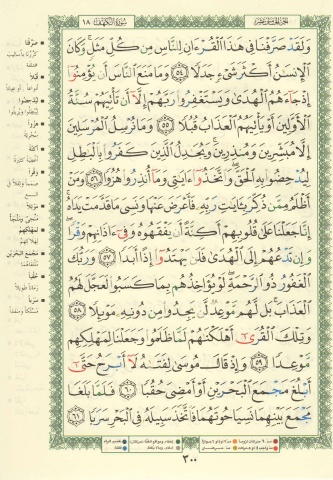 الجزء الخامس عشر
سورة الكهف ١٨
وَلَقَدْ صَرَّفْنَا فِي هَٰذَا الْقُرْءَانِ لِلنَّاسِ مِن كُلِّ مَثَلٍ وَكَانَ
الْإِنسَٰنُ أَكْثَرَ شَيْءٍ جَدَلًا ٥٤ وَمَا مَنَعَ النَّاسَ أَن يُؤْمِنُوا
إِذْ جَاءَهُمُ الْهُدَىٰ وَيَسْتَغْفِرُوا رَبَّهُمْ إِلَّا أَن تَأْتِيَهُمْ سُنَّةُ
الْأَوَّلِينَ أَوْ يَأْتِيَهُمُ الْعَذَابُ قُبُلًا ٥٥ وَمَا نُرْسِلُ الْمُرْسَلِينَ
إِلَّا مُبَشِّرِينَ وَمُنذِرِينَ وَيُجَٰدِلُ الَّذِينَ كَفَرُوا بِالْبَٰطِلِ
لِيُدْحِضُوا بِهِ الْحَقَّ وَاتَّخَذُوا ءَايَٰتِي وَمَا أُنذِرُوا هُزُوًا ٥٦ وَمَنْ
أَظْلَمُ مِمَّن ذُكِّرَ بِـَٔايَٰتِ رَبِّهِ فَأَعْرَضَ عَنْهَا وَنَسِيَ مَا قَدَّمَتْ يَدَاهُ
إِنَّا جَعَلْنَا عَلَىٰ قُلُوبِهِمْ أَكِنَّةً أَن يَفْقَهُوهُ وَفِي ءَاذَانِهِمْ وَقْرًا
وَإِن تَدْعُهُمْ إِلَى الْهُدَىٰ فَلَن يَهْتَدُوا إِذًا أَبَدًا ٥٧ وَرَبُّكَ
الْغَفُورُ ذُو الرَّحْمَةِ لَوْ يُؤَاخِذُهُم بِمَا كَسَبُوا لَعَجَّلَ لَهُمُ
الْعَذَابَ بَل لَّهُم مَّوْعِدٌ لَّن يَجِدُوا مِن دُونِهِ مَوْئِلًا ٥٨
وَتِلْكَ الْقُرَىٰ أَهْلَكْنَٰهُمْ لَمَّا ظَلَمُوا وَجَعَلْنَا لِمَهْلِكِهِم
مَّوْعِدًا ٥٩ وَإِذْ قَالَ مُوسَىٰ لِفَتَىٰهُ لَا أَبْرَحُ حَتَّىٰ
أَبْلُغَ مَجْمَعَ الْبَحْرَيْنِ أَوْ أَمْضِيَ حُقُبًا ٦٠ فَلَمَّا بَلَغَا
مَجْمَعَ بَيْنِهِمَا نَسِيَا حُوتَهُمَا فَاتَّخَذَ سَبِيلَهُ فِي الْبَحْرِ سَرَبًا ٦١
صَرَّفْنَا
قُبُلًا
لِيُدْحِضُوا
هُزُوًا
أَكِنَّةً
وَقْرًا
مَوْئِلًا
لِمَهْلِكِهِم
مَجْمَعَ الْبَحْرَيْنِ
حُقُبًا
سَرَبًا
٣٠٠